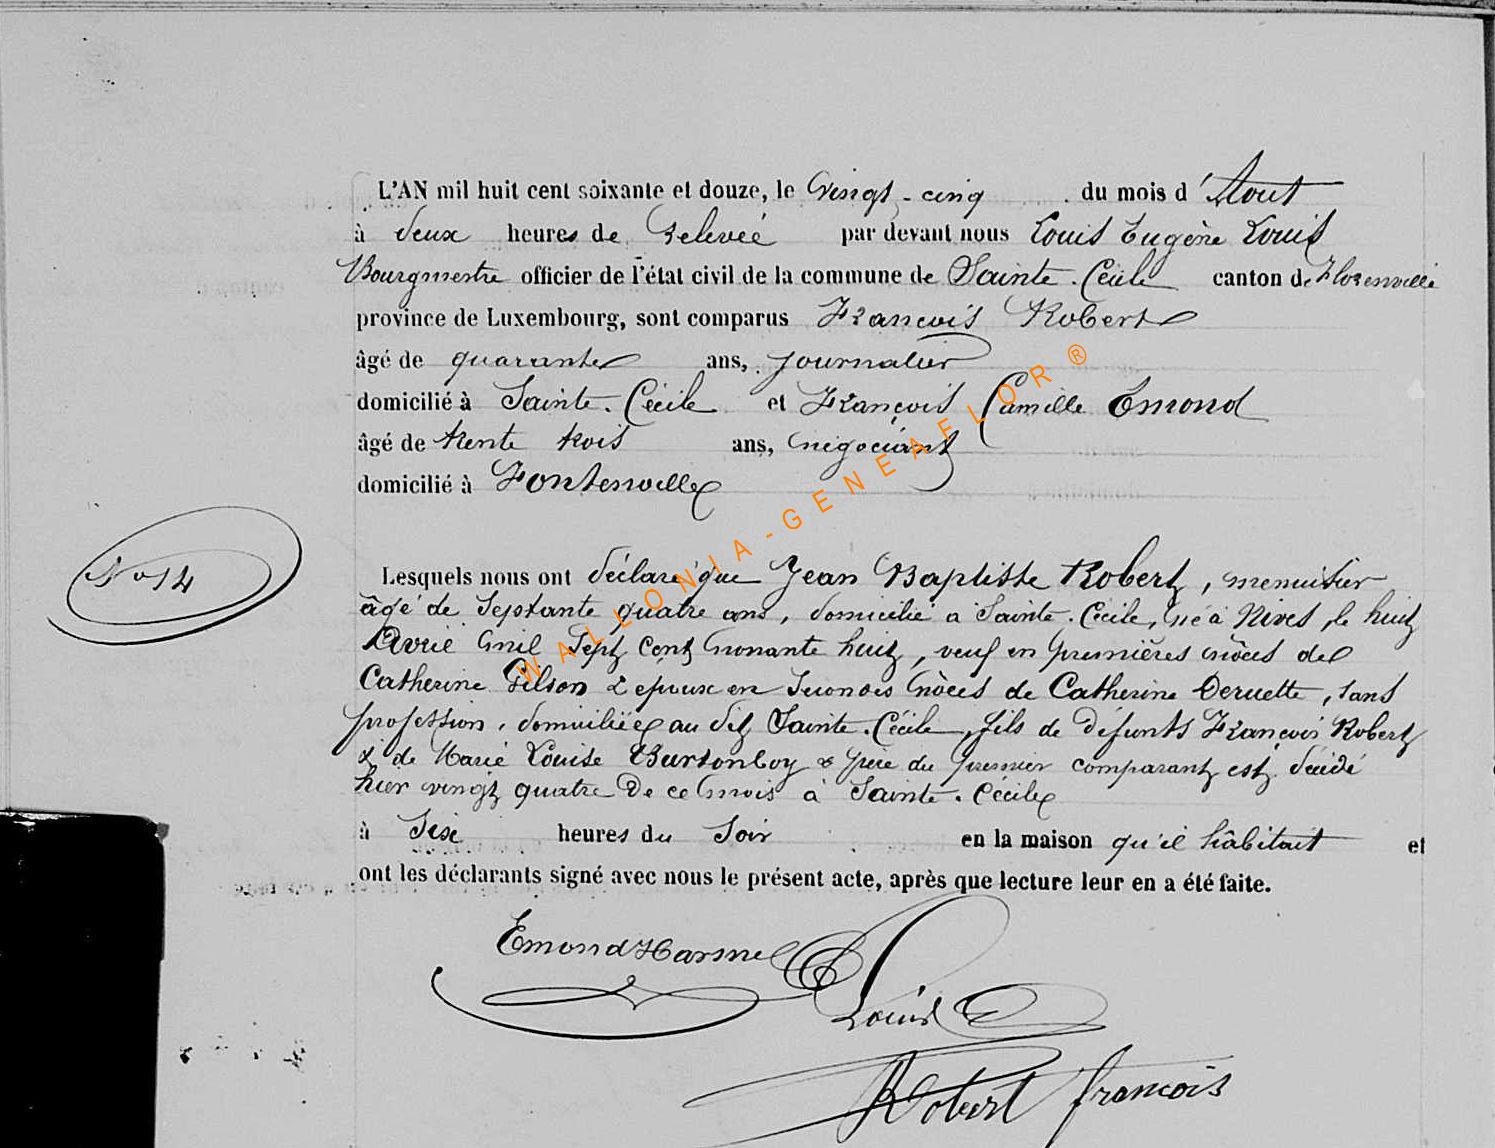 L'AN mil huit cent soixante et douze, le vingt-cinq du mois d'Aout
à deux heures de relevée par devant nous Louis Eugène Louis
Bourgmestre officier de l'état civil de la commune de Sainte-Cécile canton de Florenville
province de Luxembourg, sont comparus François Robert
âgé de quarante ans, journalier
domicilié à Sainte-Cécile et François Camille Emond
âgé de trente trois ans, négociant
domicilié à Fontenoille
N° 14
Lesquels nous ont déclaré que Jean Baptiste Robert, menuisier
âgé de septante quatre ans, domicilié à Sainte-Cécile, né à Nives, le huit
Avril mil sept cent nonante huit, veuf en premières nôces de
Catherine Gilson & epoux en secondes nôces de Catherine Deruette, sans
profession, domiciliée au dit Sainte-Cécile, fils de défunts François Robert
& de Marie Louise Burtonboy & père du premier comparant est décédé
hier vingt quatre de ce mois à Sainte-Cécile
à six heures du soir en la maison qu'il hâbitait et
ont les déclarants signé avec nous le présent acte, après que lecture leur en a été faite.
Emond Harmel
Louis
Robert françois
WALLONIA-GENEAFLOR ®